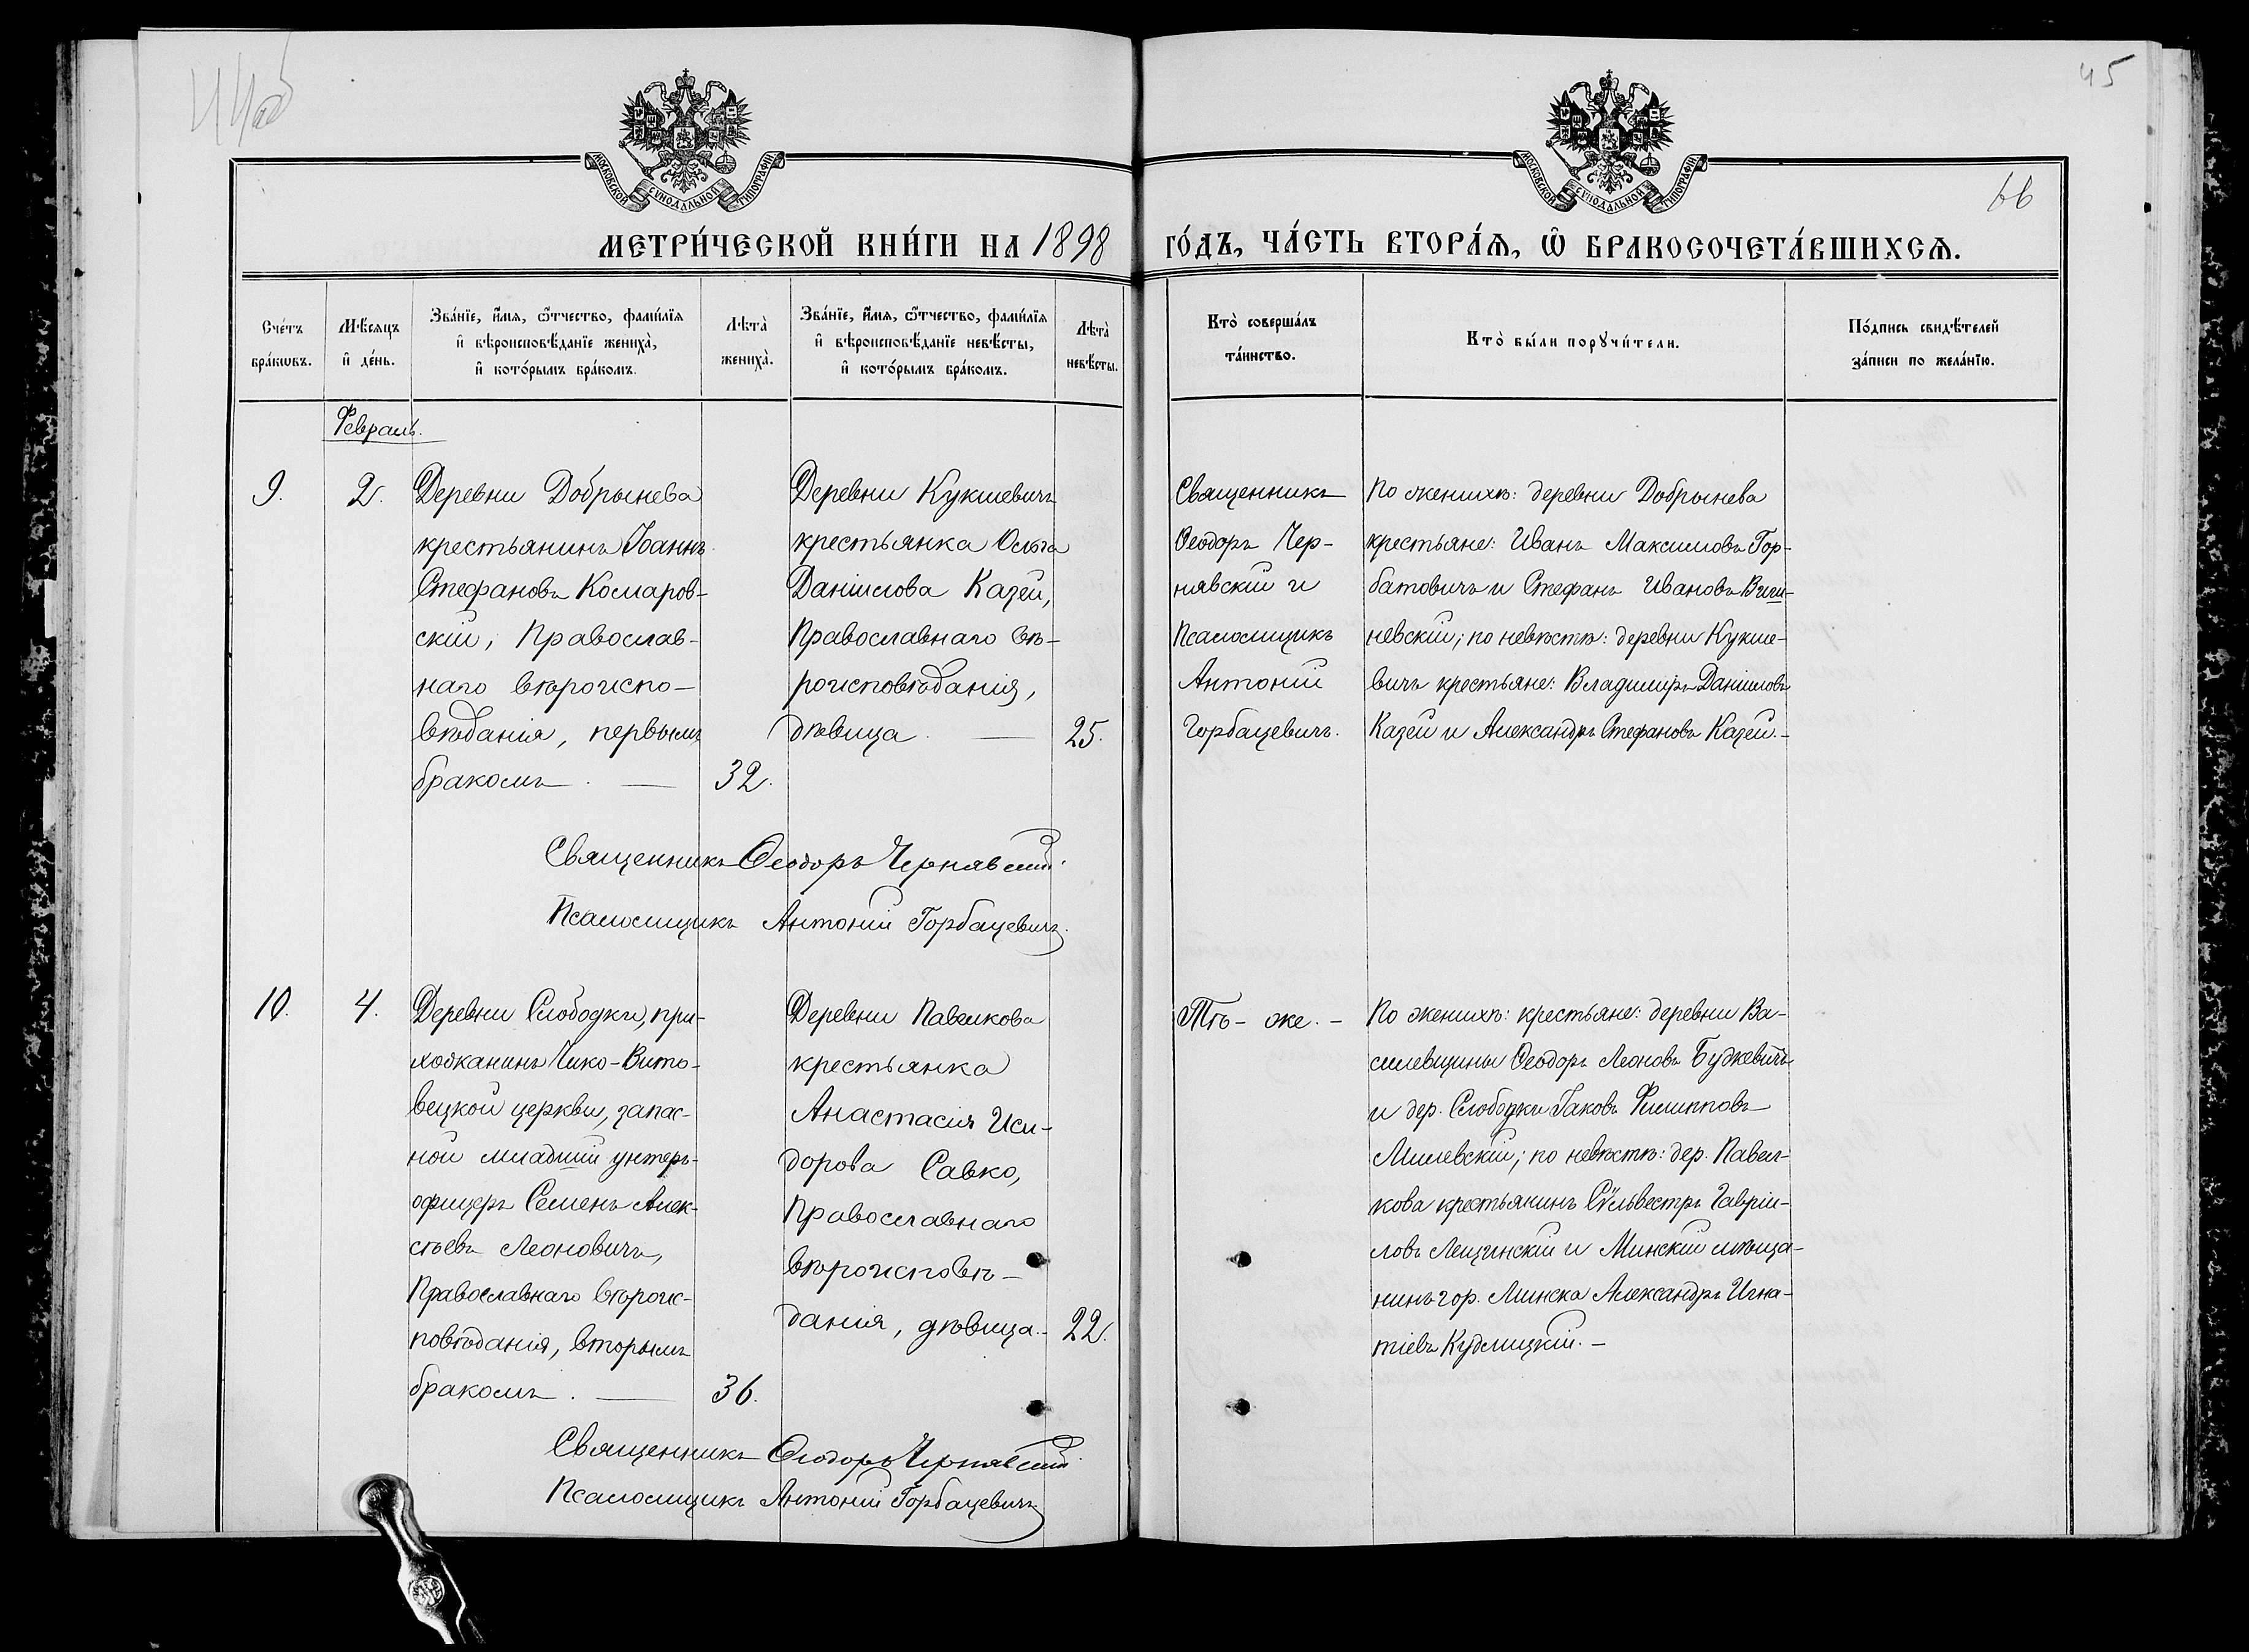 44об
45
МОСКОВСКОЙ СѴНОДАЛЬНОЙ ТИПОГРАФІИ
МОСКОВСКОЙ СѴНОДАЛЬНОЙ ТИПОГРАФІИ
66
МЕТРИ́ЧЕСКОЙ КНИ́ГИ НА 1898
ГО́ДЪ, ЧА́СТЬ ВТОРА́Ѧ, Ѽ БРАКОСОЧЕТА́ВШИХСѦ.
Сче́тъ бра́кѡвъ.
Мѣ́сяцъ и҆ де́нь.
Зва́нїе, и҆́мя, ѻ҆́тчество, фами́лїя
и҆ вѣроисповѣ́данїе жениха̀,
и҆ кото́рымъ бра́комъ.
Лѣта̀ жениха̀.
Зва́нїе, и҆́мя, ѻ҆́тчество, фами́лїя
и҆ вѣроисповѣ́данїе невѣ́сты,
и҆ кото́рымъ бра́комъ.
Лѣта̀ невѣ́сты.
Кто̀ соверша́лъ
та́инство.
Кто̀ бы́ли порꙋчи́тели.
По́дпись свидѣ́телей
за́писи по жела́нїю.
Февраль.
9.
2.
Деревни Добрынева
крестьянинъ Іоаннъ
Стефановъ Комаров-
скій, Православ-
наго вѣроиспо-
вѣданія, первымъ
бракомъ. — 32.
Деревни Кукшевичъ
крестьянка Ольга
Даніилова Казей,
Православнаго вѣ-
роисповѣданія,
дѣвица. — 25.
Священникъ
Ѳеодоръ Чер-
нявскій и
Псаломщикъ
Антоній
Горбацевичъ.
По женихѣ: деревни Добрынева
крестьяне: Иванъ Максимовъ Гор-
батовичъ и Стефанъ Ивановъ Виши-
невскій; по невѣстѣ: деревни Кукше-
вичъ крестьяне: Владимиръ Даніиловъ
Казей и Александръ Стефановъ Казей. —
Священникъ Ѳеодоръ Чернявскій.
Псаломщикъ Антоній Горбацевичъ.
10.
4.
Деревни Слободки, при-
хожанинъ Чико-Вито-
вецкой церкви, запас-
ной младшій унтеръ-
офицеръ Семенъ Алек-
сѣевъ Леоновичъ,
Православнаго вѣроис-
повѣданія, вторымъ
бракомъ. — 36.
Деревни Павелкова
крестьянка
Анастасія Иси-
дорова Савко,
Православнаго
вѣроисповѣ-
данія, дѣвица. — 22.
Тѣ-же. —
По женихѣ: крестьяне: деревни Ва-
силевщины Ѳеодоръ Леоновъ Буджевичъ
и дер. Слободки Іаковъ Филипповъ
Милевскій; по невѣстѣ: дер. Павел-
кова крестьянинъ Сѵльвестръ Гавріи-
ловъ Лещинскій и Минскій мѣща-
нинъ гор. Минска Александръ Игна-
тіевъ Кудлицкій. —
Священникъ Ѳеодоръ Чернявскій
Псаломщикъ Антоній Горбацевичъ